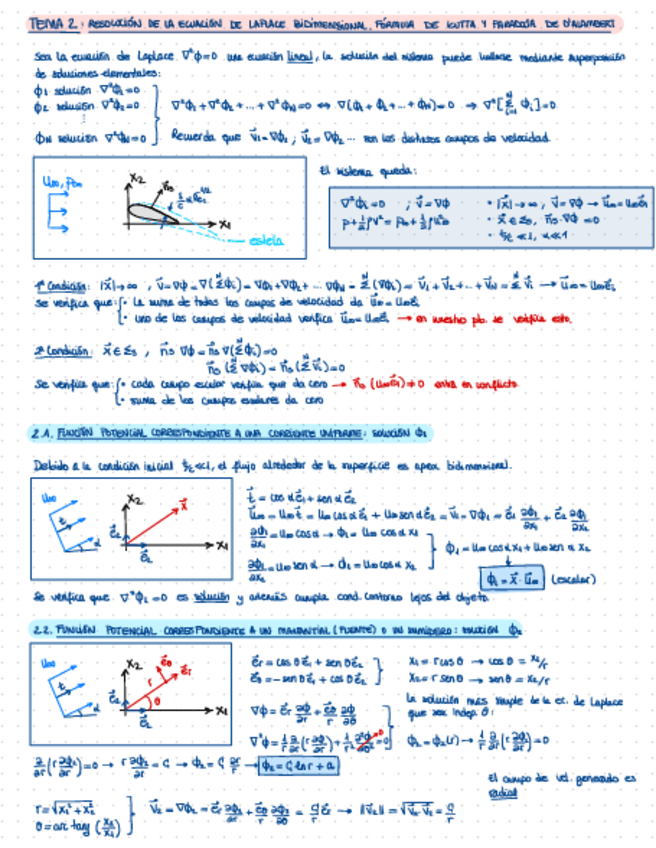 TEMA 2: RESOLUCIÓN DE LA ECUACIÓN DE LAPLACE BIDIMENSIONAL. FÓRMULA DE KUTTA Y PARADOJA DE D'ALAMBERT
Sea la ecuación de Laplace ∇²ϕ=0 una ecuación lineal, la solución del sistema puede hallarse mediante superposición
de soluciones elementales:
ϕ1 solución ∇²ϕ1=0
ϕ2 solución ∇²ϕ2=0
⋮
ϕN solución ∇²ϕN=0
∇²ϕ1+∇²ϕ2+...+∇²ϕN=0 ⇔ ∇(ϕ1+ϕ2+...+ϕN)=0 → ∇²[Σ ϕi]=0
Recuerda que V1=∇ϕ1, V2=∇ϕ2 ... son los distintos campos de velocidad.
U∞, P∞
X2
X1
estela
El sistema queda:
∇²ϕ=0 ; V=∇ϕ
• |X|→∞, V=∇ϕ → U∞=U∞e1
• X∈Σs, ns·∇ϕ=0
1ª Condición: |X|→∞, V=∇ϕ=∇(Σϕi)=∇ϕ1+∇ϕ2+...∇ϕN=Σ(∇ϕi)=V1+V2+...+VN=ΣVi → U∞=U∞e1
se verifica que: • la suma de todos los campos de velocidad da U∞=U∞e1
• uno de los campos de velocidad verifica U∞=U∞e1 → en nuestro pb. se verifica esto.
2ª Condición: X∈Σs, ns ∇ϕ=ns∇(Σϕi)=0
ns(Σ∇ϕi)=ns(ΣVi)=0
Se verifica que: • cada campo escalar verifica que da cero → ns(U∞e1)≠0 entra en conflicto
• suma de los campos escalares da cero
2.1. FUNCIÓN POTENCIAL CORRESPONDIENTE A UNA CORRIENTE UNIFORME: SOLUCIÓN ϕ1
Debido a la condición inicial t/c<<1, el flujo alrededor de la superficie es aprox bidimensional.
U∞
X2
X
X1
t = cos α e1 + sen α e2
U∞=U∞t=U∞cos α e1+U∞sen α e2=V1=∇ϕ1=e1 ∂ϕ1/∂x1+e2 ∂ϕ1/∂x2
∂ϕ1/∂x1=U∞cos α → ϕ1=U∞cos α x1
ϕ1=U∞cos α x1+U∞sen α x2
ϕ1=X·U∞ (escalar)
Se verifica que ∇²ϕ1=0 es solución y además cumple cond. contorno lejos del objeto.
2.2. FUNCIÓN POTENCIAL CORRESPONDIENTE A UN MANANTIAL (FUENTE) O UN SUMIDERO: SOLUCIÓN ϕ2
U∞
X2
r
eθ
er
θ
X1
er=cos θ e1+sen θ e2
eθ=-sen θ e1+cos θ e2
x1=r cos θ → cos θ=x1/r
x2=r sen θ → sen θ=x2/r
∇ϕ=er ∂ϕ/∂r+eθ/r ∂ϕ/∂θ
∇²ϕ=1/r ∂/∂r(r ∂ϕ/∂r)+1/r² ∂²ϕ/∂θ²=0
La solución más simple de la ec. de Laplace
que sea indep. θ:
ϕ2=ϕ2(r) → 1/r ∂/∂r(r ∂ϕ/∂r)=0
∂/∂r(r ∂ϕ2/∂r)=0 → r ∂ϕ2/∂r=C1 → ϕ2=C1 ∂r/r → ϕ2=C1 ln r+a
El campo de vel. generado es
radial
r=√x1²+x2²
θ=arc tang(x2/x1)
V2=∇ϕ2=er ∂ϕ2/∂r+eθ/r ∂ϕ2/∂θ=C1/r er → ||V2||=√V2·V2=C1/r